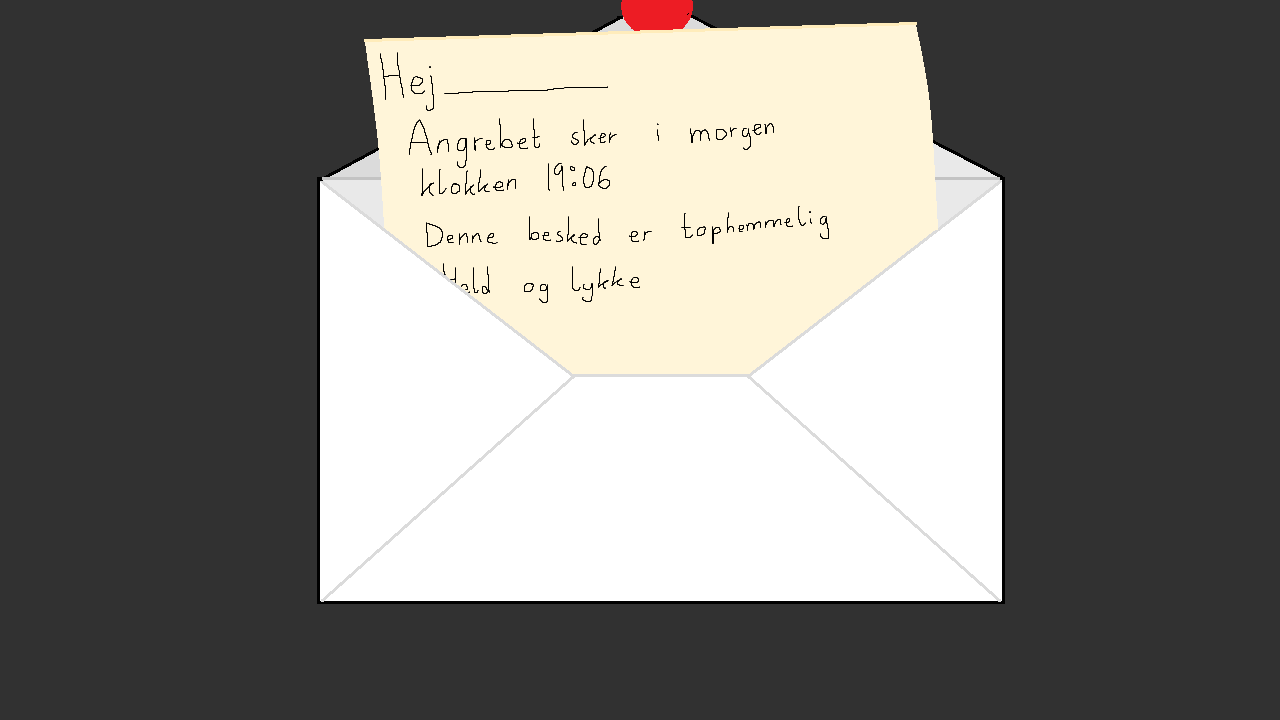 Hej ________
Angrebet sker i morgen
klokken 19:06
Denne besked er tophemmelig
Held og lykke